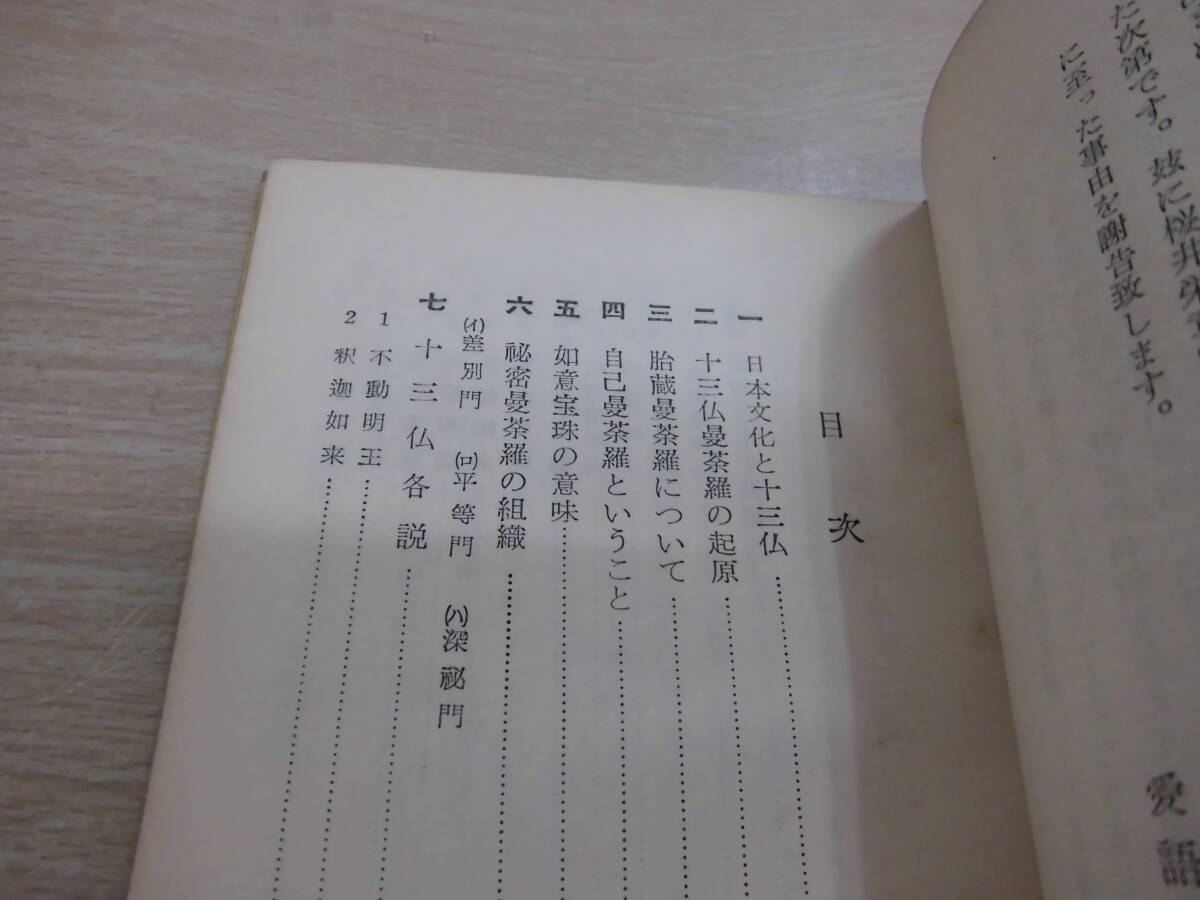 た次第です。玆に桜井
に至った事由を謝告致します。
愛語
目次
一 日本文化と十三仏
二 十三仏曼荼羅の起原
三 胎蔵曼荼羅について
四 自己曼荼羅ということ
五 如意宝珠の意味
六 祕密曼荼羅の組織
(イ)差別門 (ロ)平等門 (ハ)深祕門
七 十三仏各説
1 不動明王
2 釈迦如来